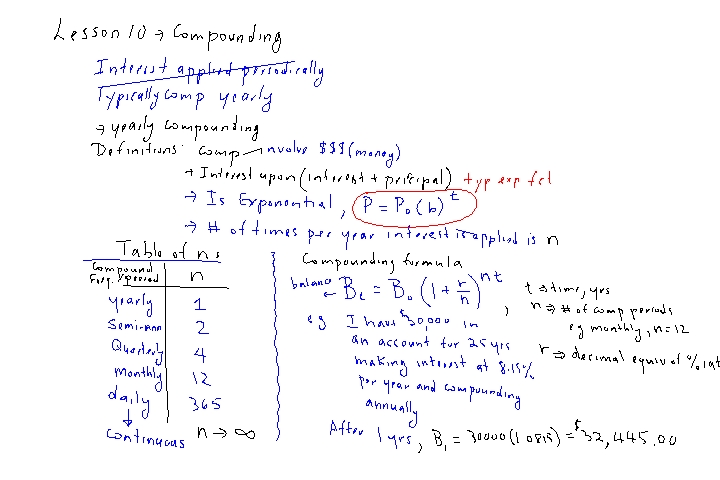 Lesson 10 → Compounding
Interest applied periodically
Typically comp yearly
→ yearly compounding
Definitions: comp involve $$$ (money)
→ Interest upon (interest + principal) typ exp fct
→ Is Exponential, P = P₀(b)^t
→ # of times per year interest is applied is n
Table of n's
Compound Freq. / period n
yearly 1
Semi-ann 2
Quarterly 4
monthly 12
daily 365
↓
continuous n → ∞
Compounding formula
balance ← B_t = B₀(1 + r/n)^nt,
t ⇒ time, yrs
n ⇒ # of comp periods
eg monthly, n=12
r ⇒ decimal equiv of % rat
eg I have $30,000 in
an account for 25 yrs
making interest at 8.15%
per year and compounding
annually
After 1 yrs, B₁ = 30000(1.0815) = $32,445.00